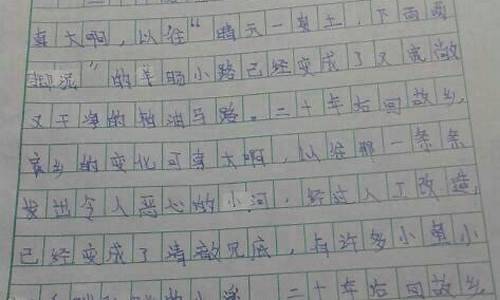 真大啊，以往“晴天一身土，下雨两
脚泥”的羊肠小路已经变成了又宽敞
又干净的柏油马路。二十年后回故乡，
家乡的变化可真大啊，以往那一条条
发出令人恶心的小河，经过人工改造，
已经变成了清澈见底，有许多小鱼小
二十年后回故乡